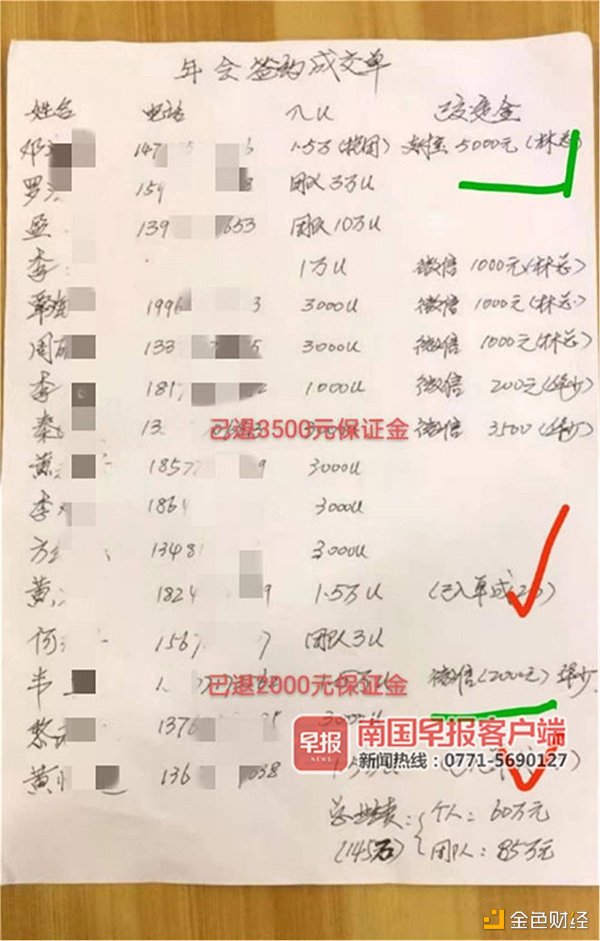 年会签约成交单
姓名 电话 入U 已交定金
邓 147 1.5万(抱团) 支付宝 5000元(林总)
罗 159 8 团队3万U
139 653 团队10万U
李 1万U 微信 1000元(林总)
覃 1996 3 3000U 微信 1000元(林总)
周 133 5 3000U 微信 1000元(林总)
李 1817 1000U 微信 200元(华少)
秦 13 已退3500元保证金 微信 3500(华少)
黄 1857 9 3000U
李 186 3000U
方 1348 3000U
黄 1824 9 1.5万U (已入单成功)
何 1567 7 团队3U
韦 1 已退2000元保证金 微信(2000元)华少
黎 1376 5 3000U
早报 NEWS 南国早报客户端
新闻热线:0771-5690127
黄 136 038
总业绩: 个人:60万元
(145万) 团队:85万元
金色财经